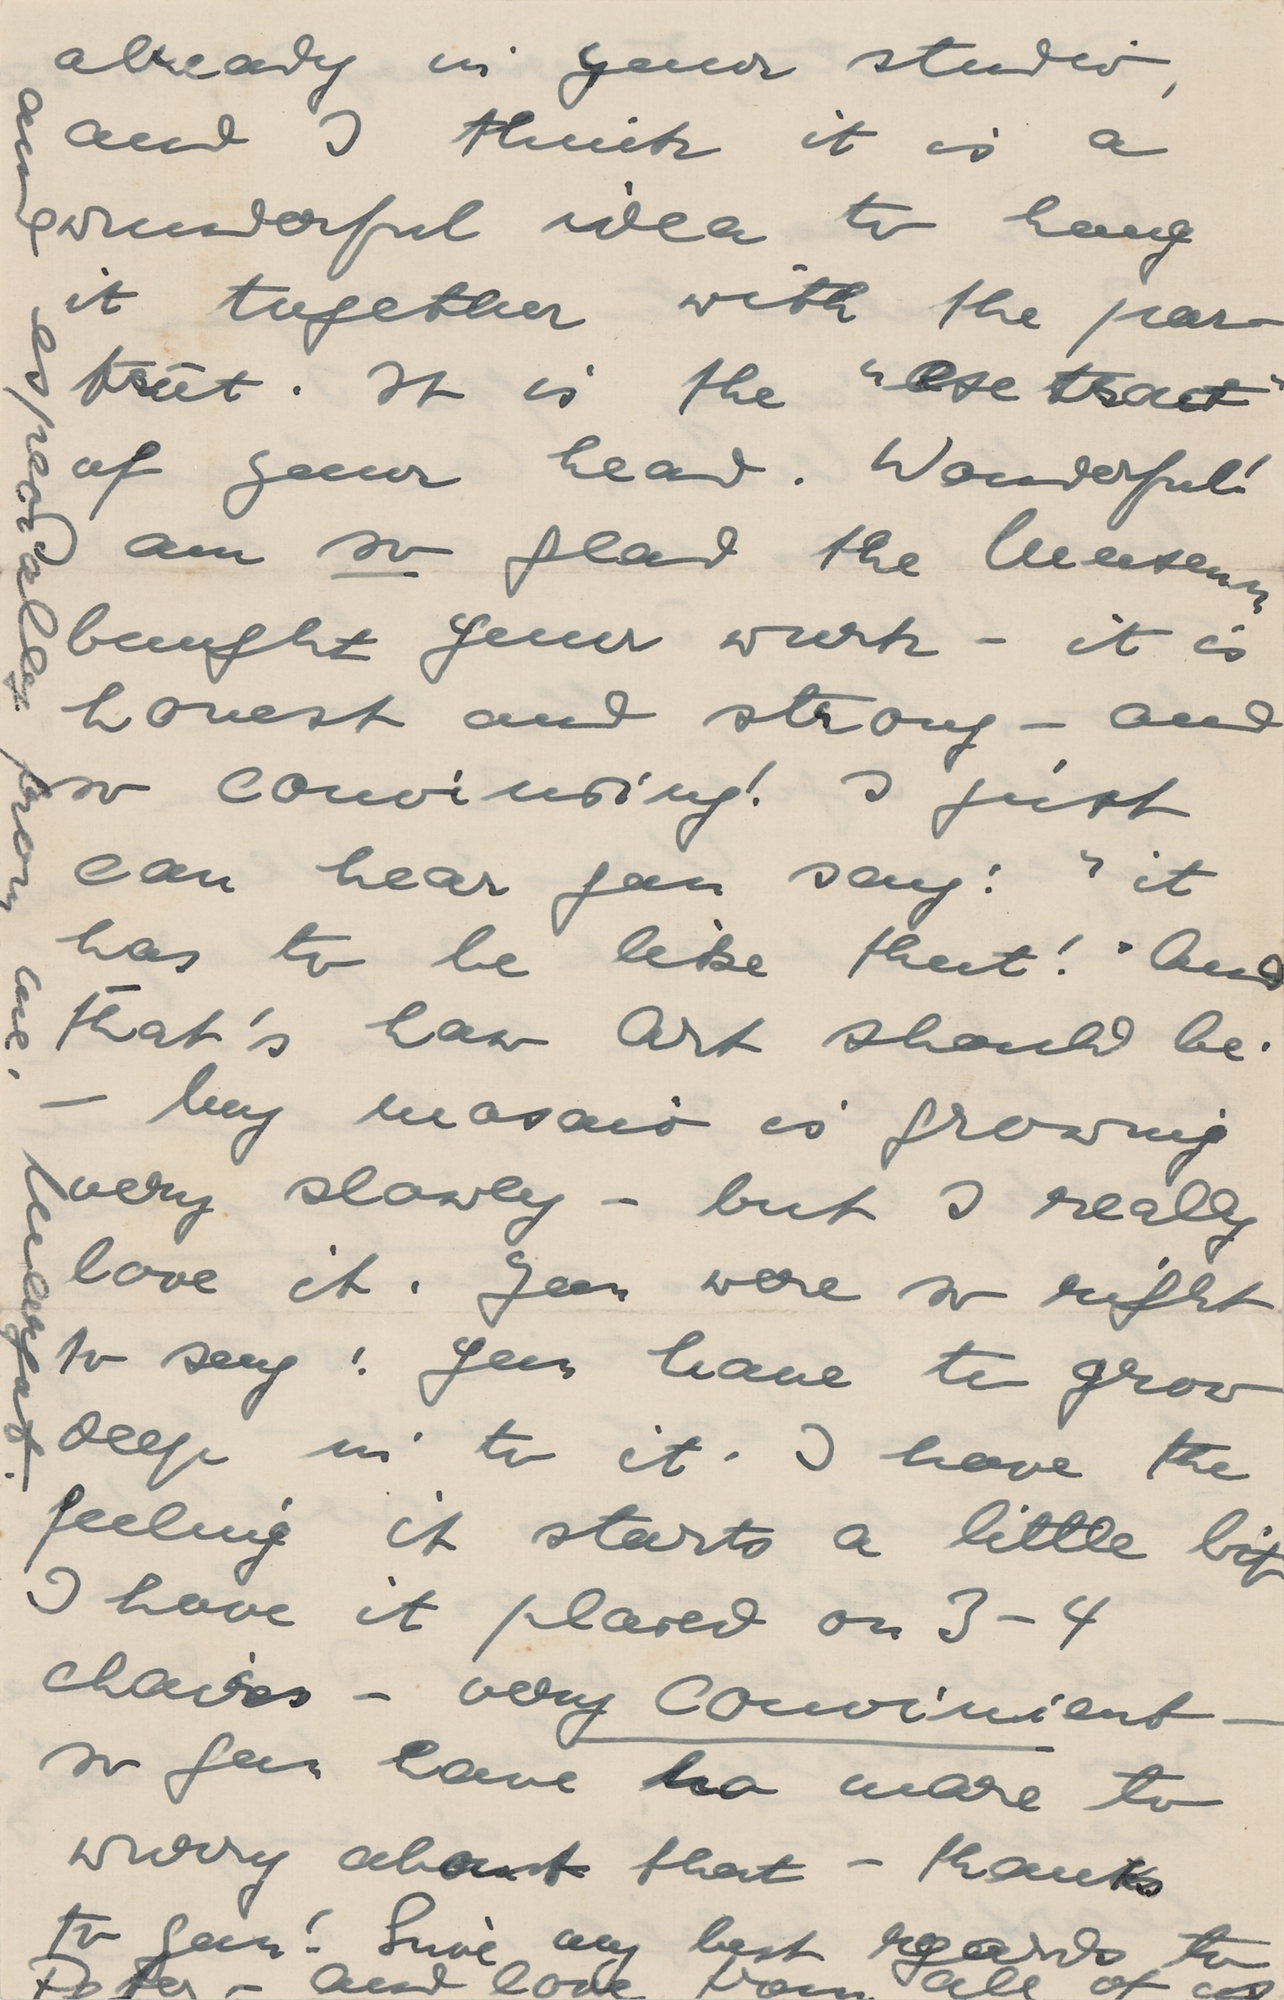 already in your studio,
and I think it is a
wunderful idea to hang
it together with the por-
trait. It is the "extract"
of your head. Wonderful!
am so glad the Museum
bought your work - it is
honest and strong - and
so convincing! I just
can hear you say: "it
has to be like that!" And
that's how Art should be.
- My mosaic is growing
very slowly - but I really
love it. You were so right
to say: you have to grow
deep in to it. I have the
feeling it starts a little bit
I have it placed on 3-4
chairs - very convinient -
so you have no more to
worry about that - thanks
to you! Give my best regards to
Peter - and love from all of us
and especially from me. Margret.